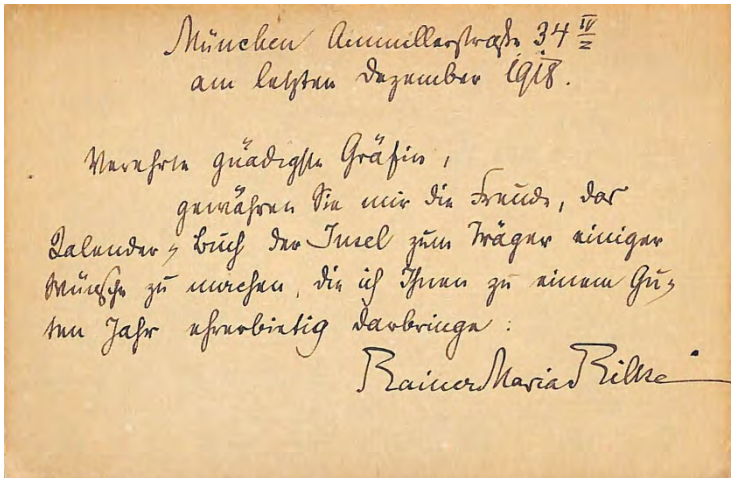 München Ainmillerstraße 34 IV
am letzten Dezember 1918.
Verehrte gnädigste Gräfin,
gewähren Sie mir die Freude, das
Kalender-Buch der Insel zum Träger einiger
Wünsche zu machen, die ich Ihnen zu einem Gu-
ten Jahr ehrerbietig darbringe:
Rainer Maria Rilke